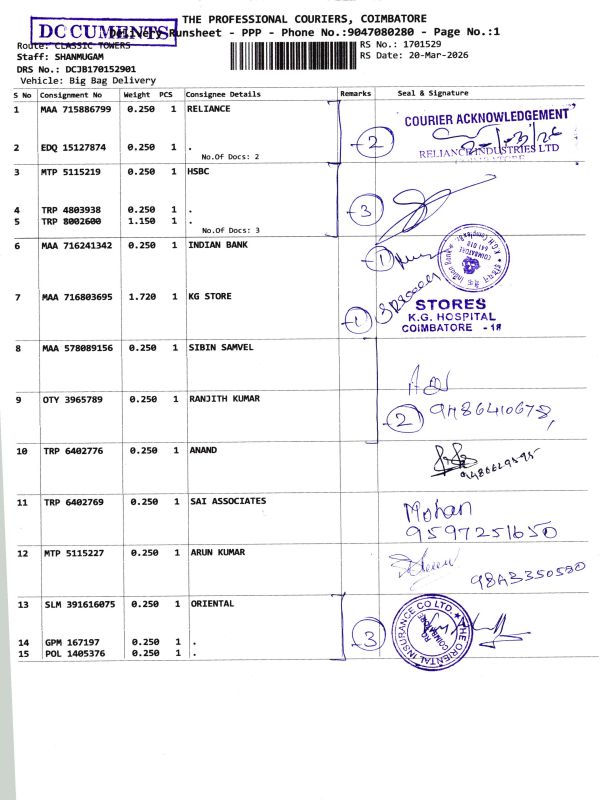 THE PROFESSIONAL COURIERS, COIMBATORE
DOCUMENTS
Delivery Runsheet - PPP - Phone No.:9047080280 - Page No.:1
Route: CLASSIC TOWERS
RS No.: 1701529
Staff: SHANMUGAM
RS Date: 20-Mar-2026
DRS No.: DCJB170152901
Vehicle: Big Bag Delivery
S No Consignment No Weight PCS Consignee Details Remarks Seal & Signature
1 MAA 715886799 0.250 1 RELIANCE
COURIER ACKNOWLEDGEMENT
2
RELIANCE INDUSTRIES LTD
COIMBATORE
2 EDQ 15127874 0.250 1 .
No.Of Docs: 2
3 MTP 5115219 0.250 1 HSBC
3
4 TRP 4803938 0.250 1 .
5 TRP 8002600 1.150 1 .
No.Of Docs: 3
6 MAA 716241342 0.250 1 INDIAN BANK
1
COIMBATORE
641 018
7 MAA 716803695 1.720 1 KG STORE
1
STORES
K.G. HOSPITAL
COIMBATORE - 18
8 MAA 578089156 0.250 1 SIBIN SAMVEL
9 OTY 3965789 0.250 1 RANJITH KUMAR
2 9486410678,
10 TRP 6402776 0.250 1 ANAND
9486629595
11 TRP 6402769 0.250 1 SAI ASSOCIATES
Mohan
9597251650
12 MTP 5115227 0.250 1 ARUN KUMAR
13 SLM 391616075 0.250 1 ORIENTAL
3
THE ORIENTAL INSURANCE CO LTD.
14 GPM 167197 0.250 1 .
15 POL 1405376 0.250 1 .